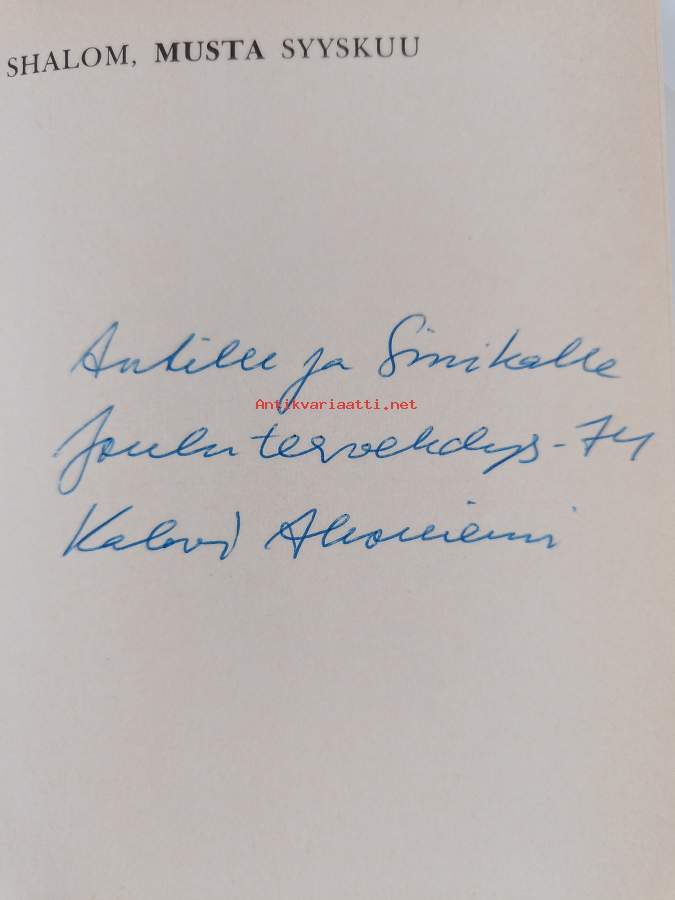 SHALOM, MUSTA SYYSKUU
Antille ja Sinikalle
Antikvariaatti.net
Joulutervehdys -74
Kalevi Ahoniemi